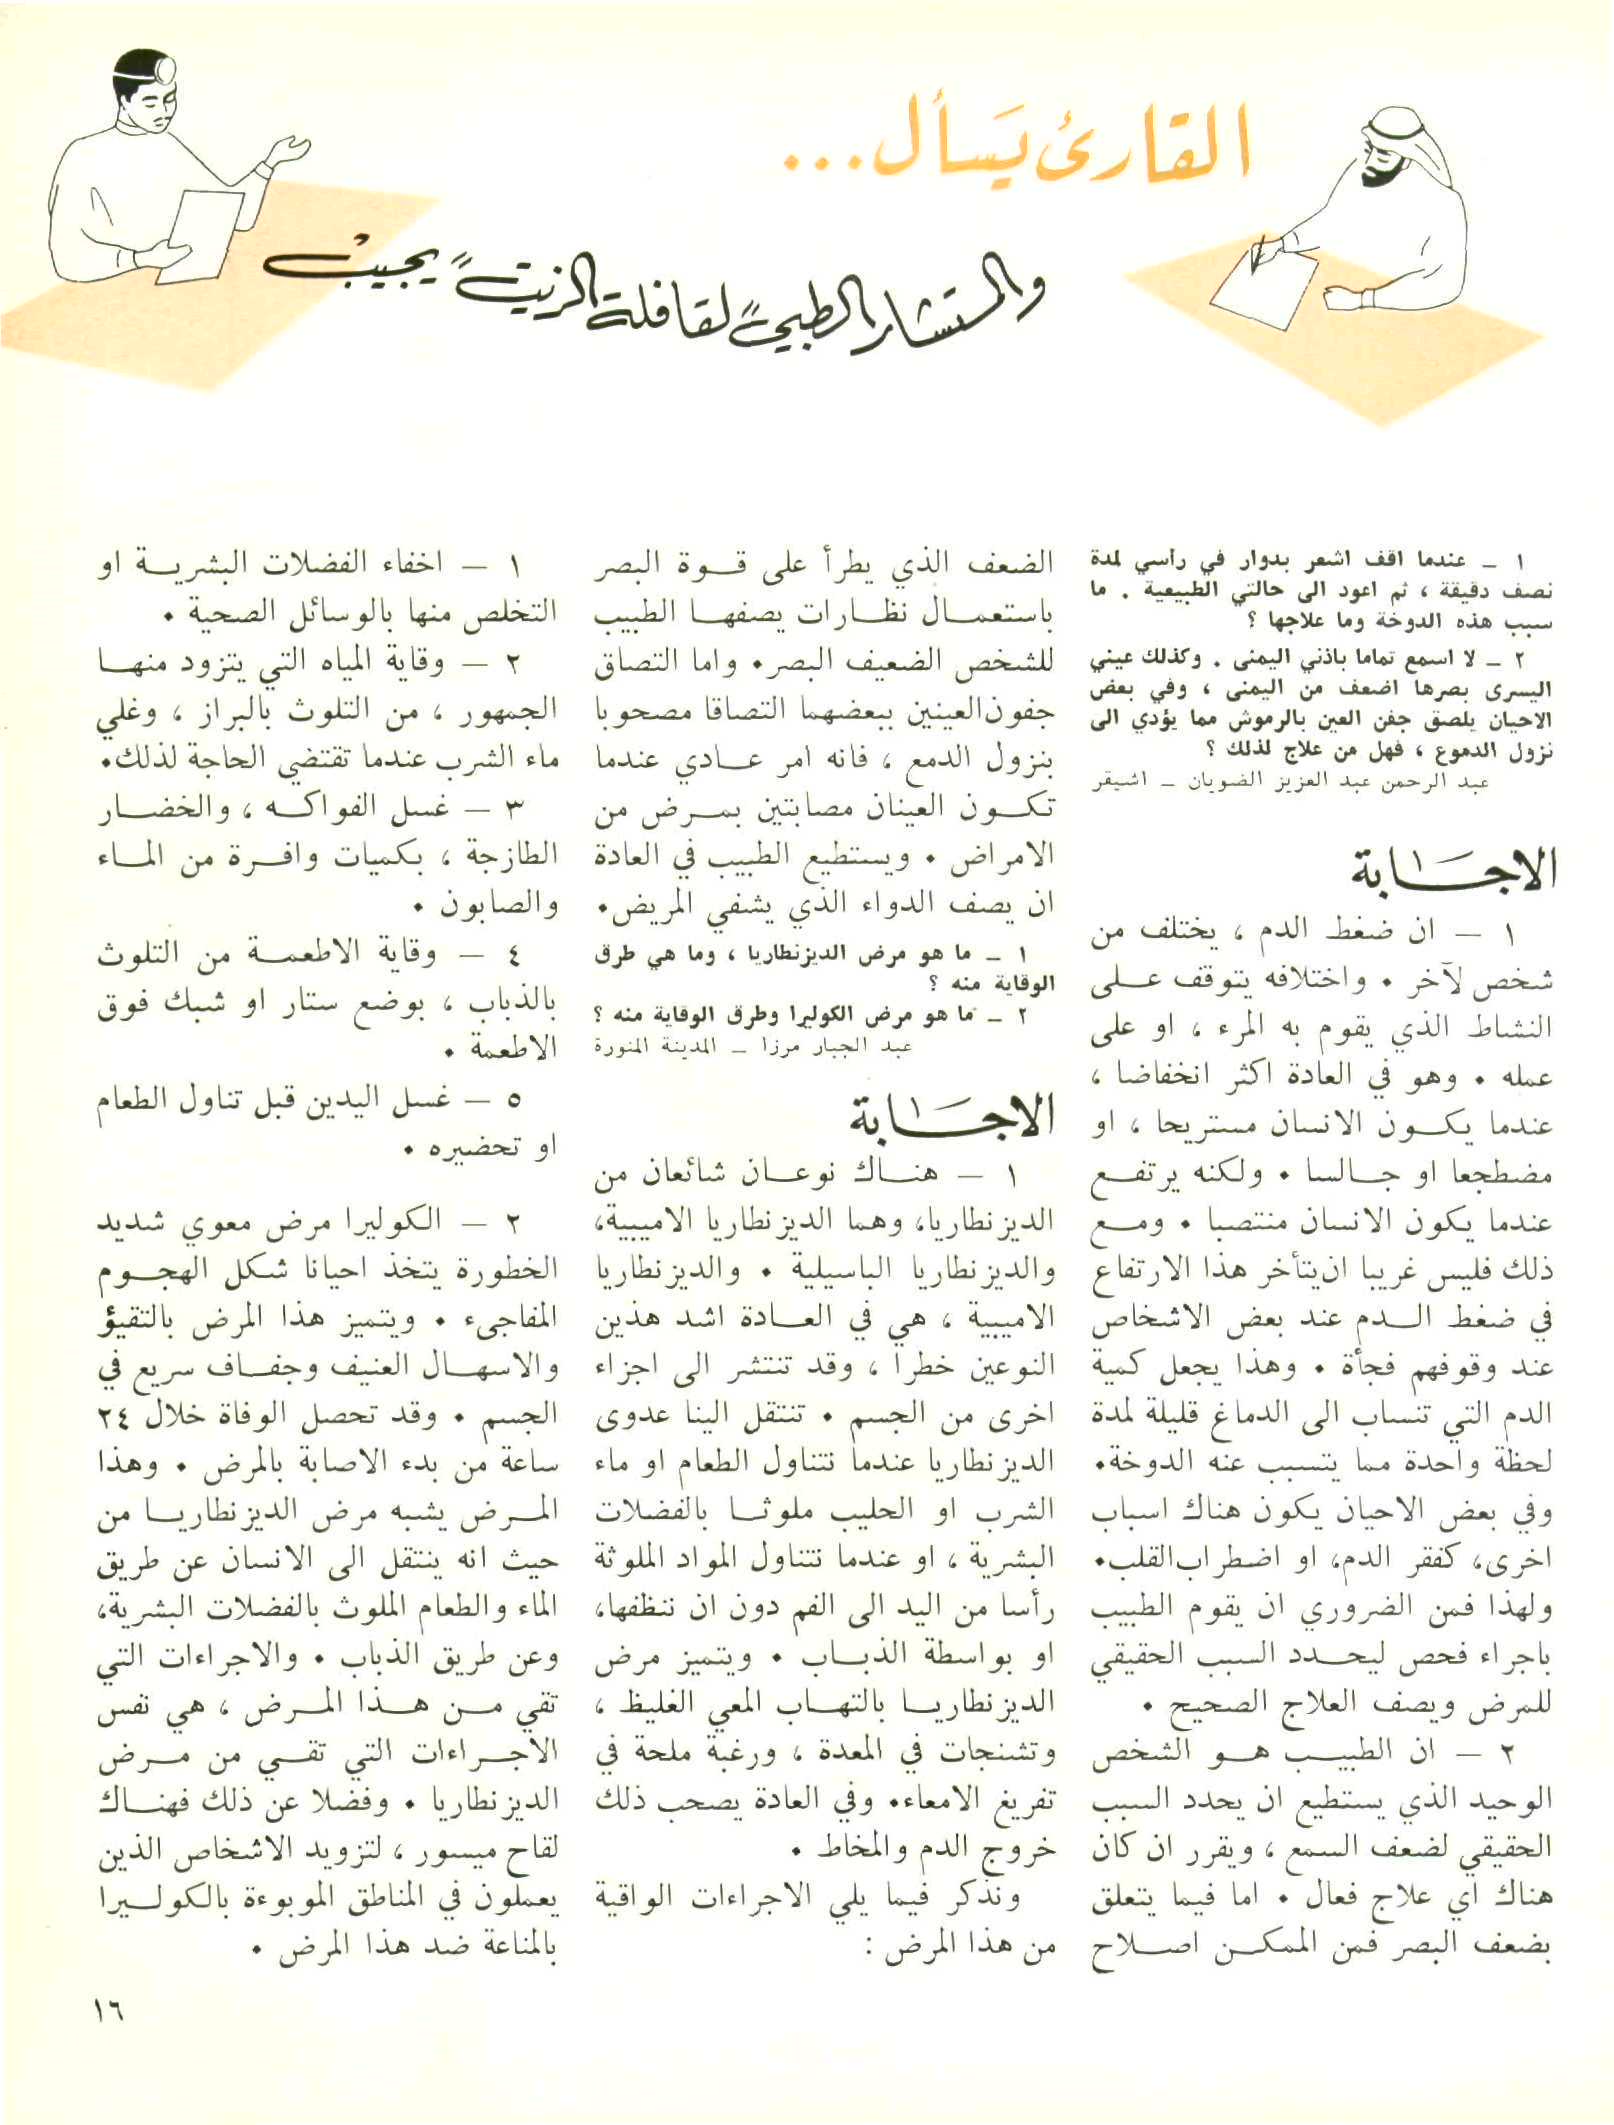 القارئ يَسأل...
والمستشار الطبي لقافلة الزيت يجيبُ
١ ــ عندما اقف اشعر بدوار في رأسي لمدة
نصف دقيقة ، ثم اعود الى حالتي الطبيعية . ما
سبب هذه الدوخة وما علاجها ؟
٢ ــ لا اسمع تماما باذني اليمنى . وكذلك عيني
اليسرى بصرها اضعف من اليمنى ، وفي بعض
الاحيان يلصق جفن العين بالرموش مما يؤدي الى
نزول الدموع ، فهل من علاج لذلك ؟
عبد الرحمن عبد العزيز الضويان ــ اشيقر
الاجَــابة
١ ــ ان ضغط الدم ، يختلف من
شخص لآخر . واختلافه يتوقف على
النشاط الذي يقوم به المرء ، او على
عمله . وهو في العادة اكثر انخفاضا ،
عندما يكون الانسان مستريحا ، او
مضطجعا او جالسا . ولكنه يرتفع
عندما يكون الانسان منتصبا . ومع
ذلك فليس غريبا ان يتأخر هذا الارتفاع
في ضغط الدم عند بعض الاشخاص
عند وقوفهم فجأة . وهذا يجعل كمية
الدم التي تنساب الى الدماغ قليلة لمدة
لحظة واحدة مما يتسبب عنه الدوخة.
وفي بعض الاحيان يكون هناك اسباب
اخرى، كفقر الدم، او اضطراب القلب.
ولهذا فمن الضروري ان يقوم الطبيب
باجراء فحص ليحدد السبب الحقيقي
للمرض ويصف العلاج الصحيح .
٢ ــ ان الطبيب هو الشخص
الوحيد الذي يستطيع ان يحدد السبب
الحقيقي لضعف السمع ، ويقرر ان كان
هناك اي علاج فعال . اما فيما يتعلق
بضعف البصر فمن الممكن اصلاح
الضعف الذي يطرأ على قوة البصر
باستعمال نظارات يصفها الطبيب
للشخص الضعيف البصر. واما التصاق
جفون العينين ببعضهما التصاقا مصحوبا
بنزول الدمع ، فانه امر عادي عندما
تكون العينان مصابتين بمرض من
الامراض . ويستطيع الطبيب في العادة
ان يصف الدواء الذي يشفي المريض.
١ ــ ما هو مرض الديزنطاريا ، وما هي طرق
الوقاية منه ؟
٢ ــ ما هو مرض الكوليرا وطرق الوقاية منه ؟
عبد الجبار مرزا ــ المدينة المنورة
الاجَــابة
١ ــ هناك نوعان شائعان من
الديزنطاريا، وهما الديزنطاريا الاميبية،
والديزنطاريا الباسيلية . والديزنطاريا
الاميبية ، هي في العادة اشد هذين
النوعين خطرا ، وقد تنتشر الى اجزاء
اخرى من الجسم . تنتقل الينا عدوى
الديزنطاريا عندما نتناول الطعام او ماء
الشرب او الحليب ملوثا بالفضلات
البشرية ، او عندما نتناول المواد الملوثة
رأسا من اليد الى الفم دون ان ننظفها،
او بواسطة الذباب . ويتميز مرض
الديزنطاريا بالتهاب المعي الغليظ ،
وتشنجات في المعدة ، ورغبة ملحة في
تفريغ الامعاء. وفي العادة يصحب ذلك
خروج الدم والمخاط .
ونذكر فيما يلي الاجراءات الواقية
من هذا المرض :
١ ــ اخفاء الفضلات البشرية او
التخلص منها بالوسائل الصحية .
٢ ــ وقاية المياه التي يتزود منها
الجمهور ، من التلوث بالبراز ، وغلي
ماء الشرب عندما تقتضي الحاجة لذلك.
٣ ــ غسل الفواكه ، والخضار
الطازجة ، بكميات وافرة من الماء
والصابون .
٤ ــ وقاية الاطعمة من التلوث
بالذباب ، بوضع ستار او شبك فوق
الاطعمة .
٥ ــ غسل اليدين قبل تناول الطعام
او تحضيره .
٢ ــ الكوليرا مرض معوي شديد
الخطورة يتخذ احيانا شكل الهجوم
المفاجىء . ويتميز هذا المرض بالتقيؤ
والاسهال العنيف وجفاف سريع في
الجسم . وقد تحصل الوفاة خلال ٢٤
ساعة من بدء الاصابة بالمرض . وهذا
المرض يشبه مرض الديزنطاريا من
حيث انه ينتقل الى الانسان عن طريق
الماء والطعام الملوث بالفضلات البشرية،
وعن طريق الذباب . والاجراءات التي
تقي من هذا المرض ، هي نفس
الاجراءات التي تقي من مرض
الديزنطاريا . وفضلا عن ذلك فهناك
لقاح ميسور ، لتزويد الاشخاص الذين
يعملون في المناطق الموبوءة بالكوليرا
بالمناعة ضد هذا المرض .
١٦